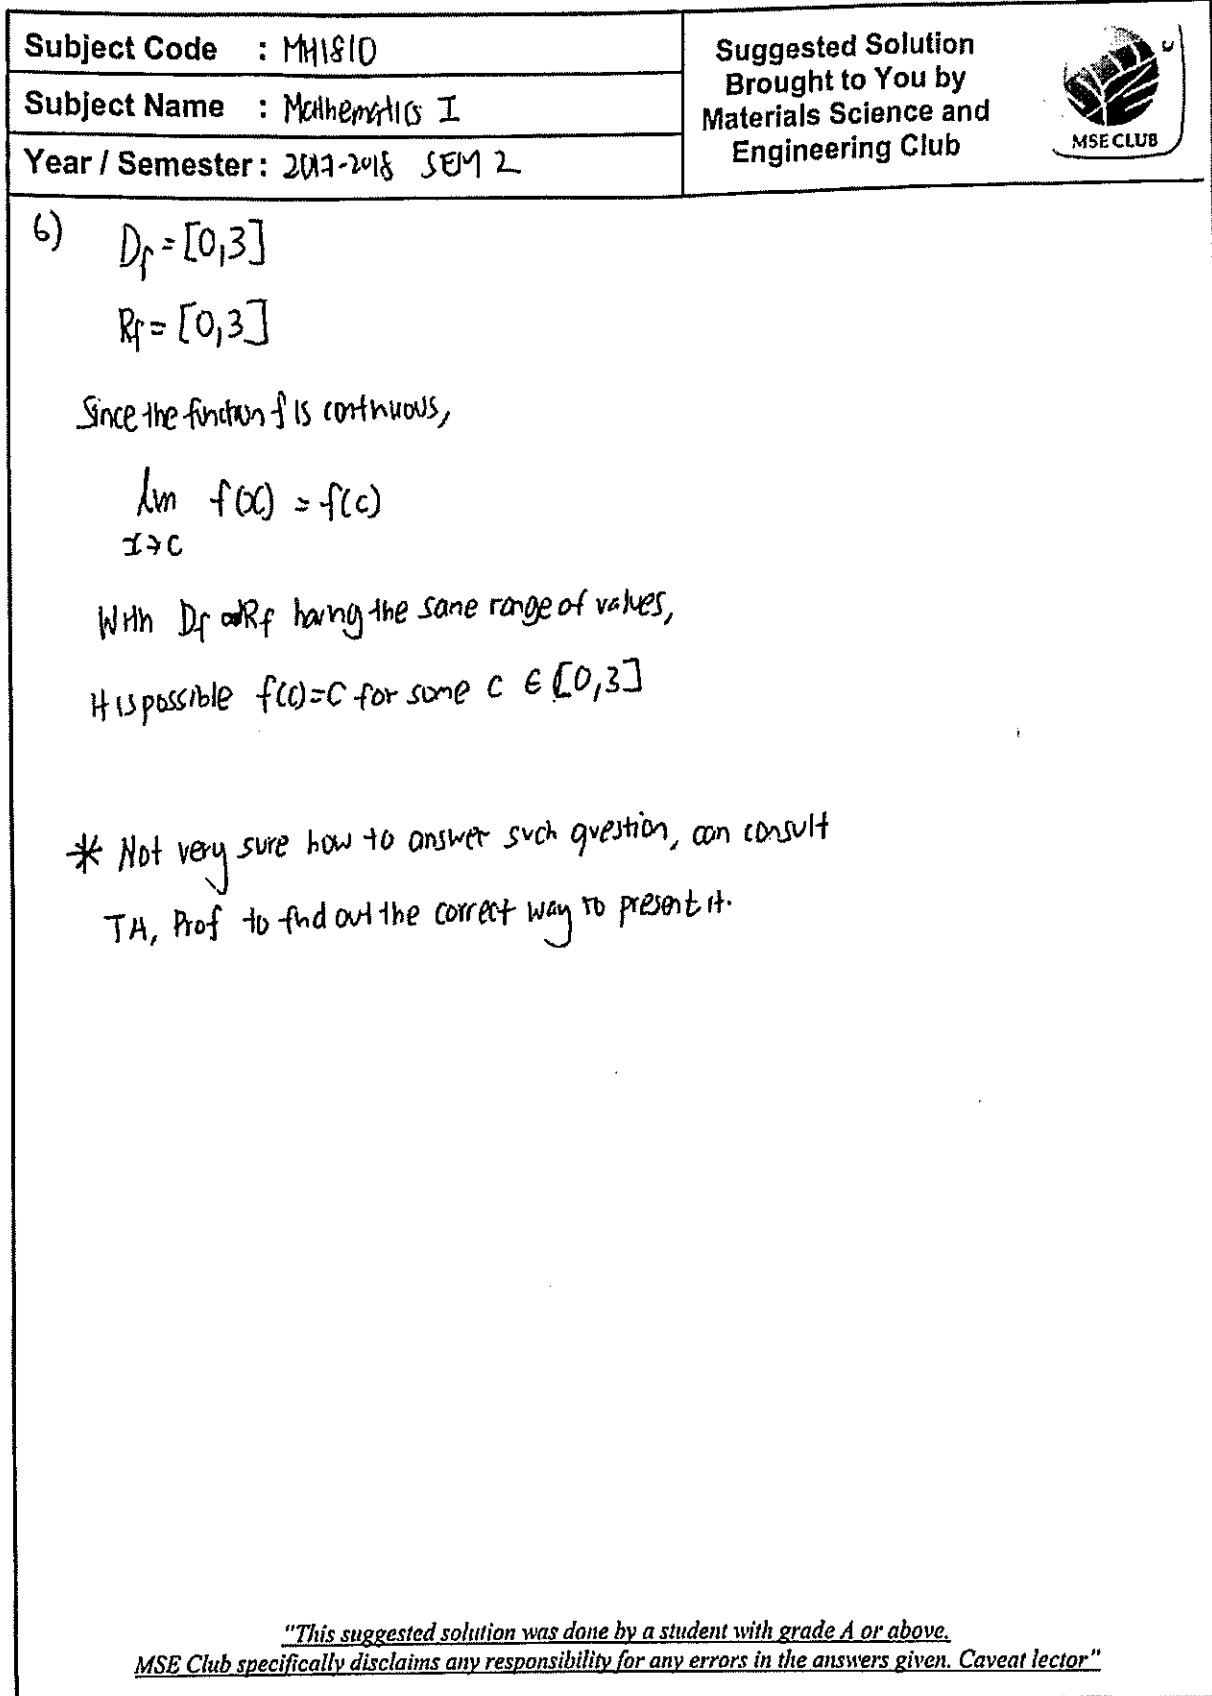 Subject Code : MH1810
Subject Name : Mathematics I
Year / Semester : 2017-2018 SEM 2
Suggested Solution
Brought to You by
Materials Science and
Engineering Club
MSE CLUB
6) Df = [0,3]
Rf = [0,3]
Since the function f is continuous,
lim f(x) = f(c)
x→c
With Df and Rf having the same range of values,
it is possible f(c)=c for some c ∈ [0,3]
* Not very sure how to answer such question, can consult
TA, Prof to find out the correct way to present it.
"This suggested solution was done by a student with grade A or above.
MSE Club specifically disclaims any responsibility for any errors in the answers given. Caveat lector"